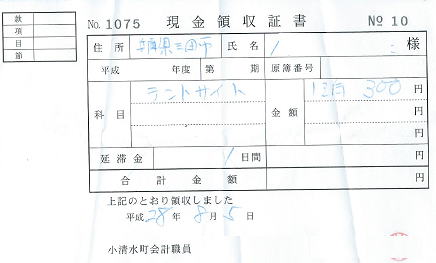 款
項
目
節
No. 1075 現金領収証書 № 10
住所 兵庫県三田市 氏名 様
平成 年度 第 期 原簿番号
科目 テントサイト 金額 1泊 300 円
円
円
延滞金 1日間 円
合計金額 円
上記のとおり領収しました
平成28年8月5日
小清水町会計職員